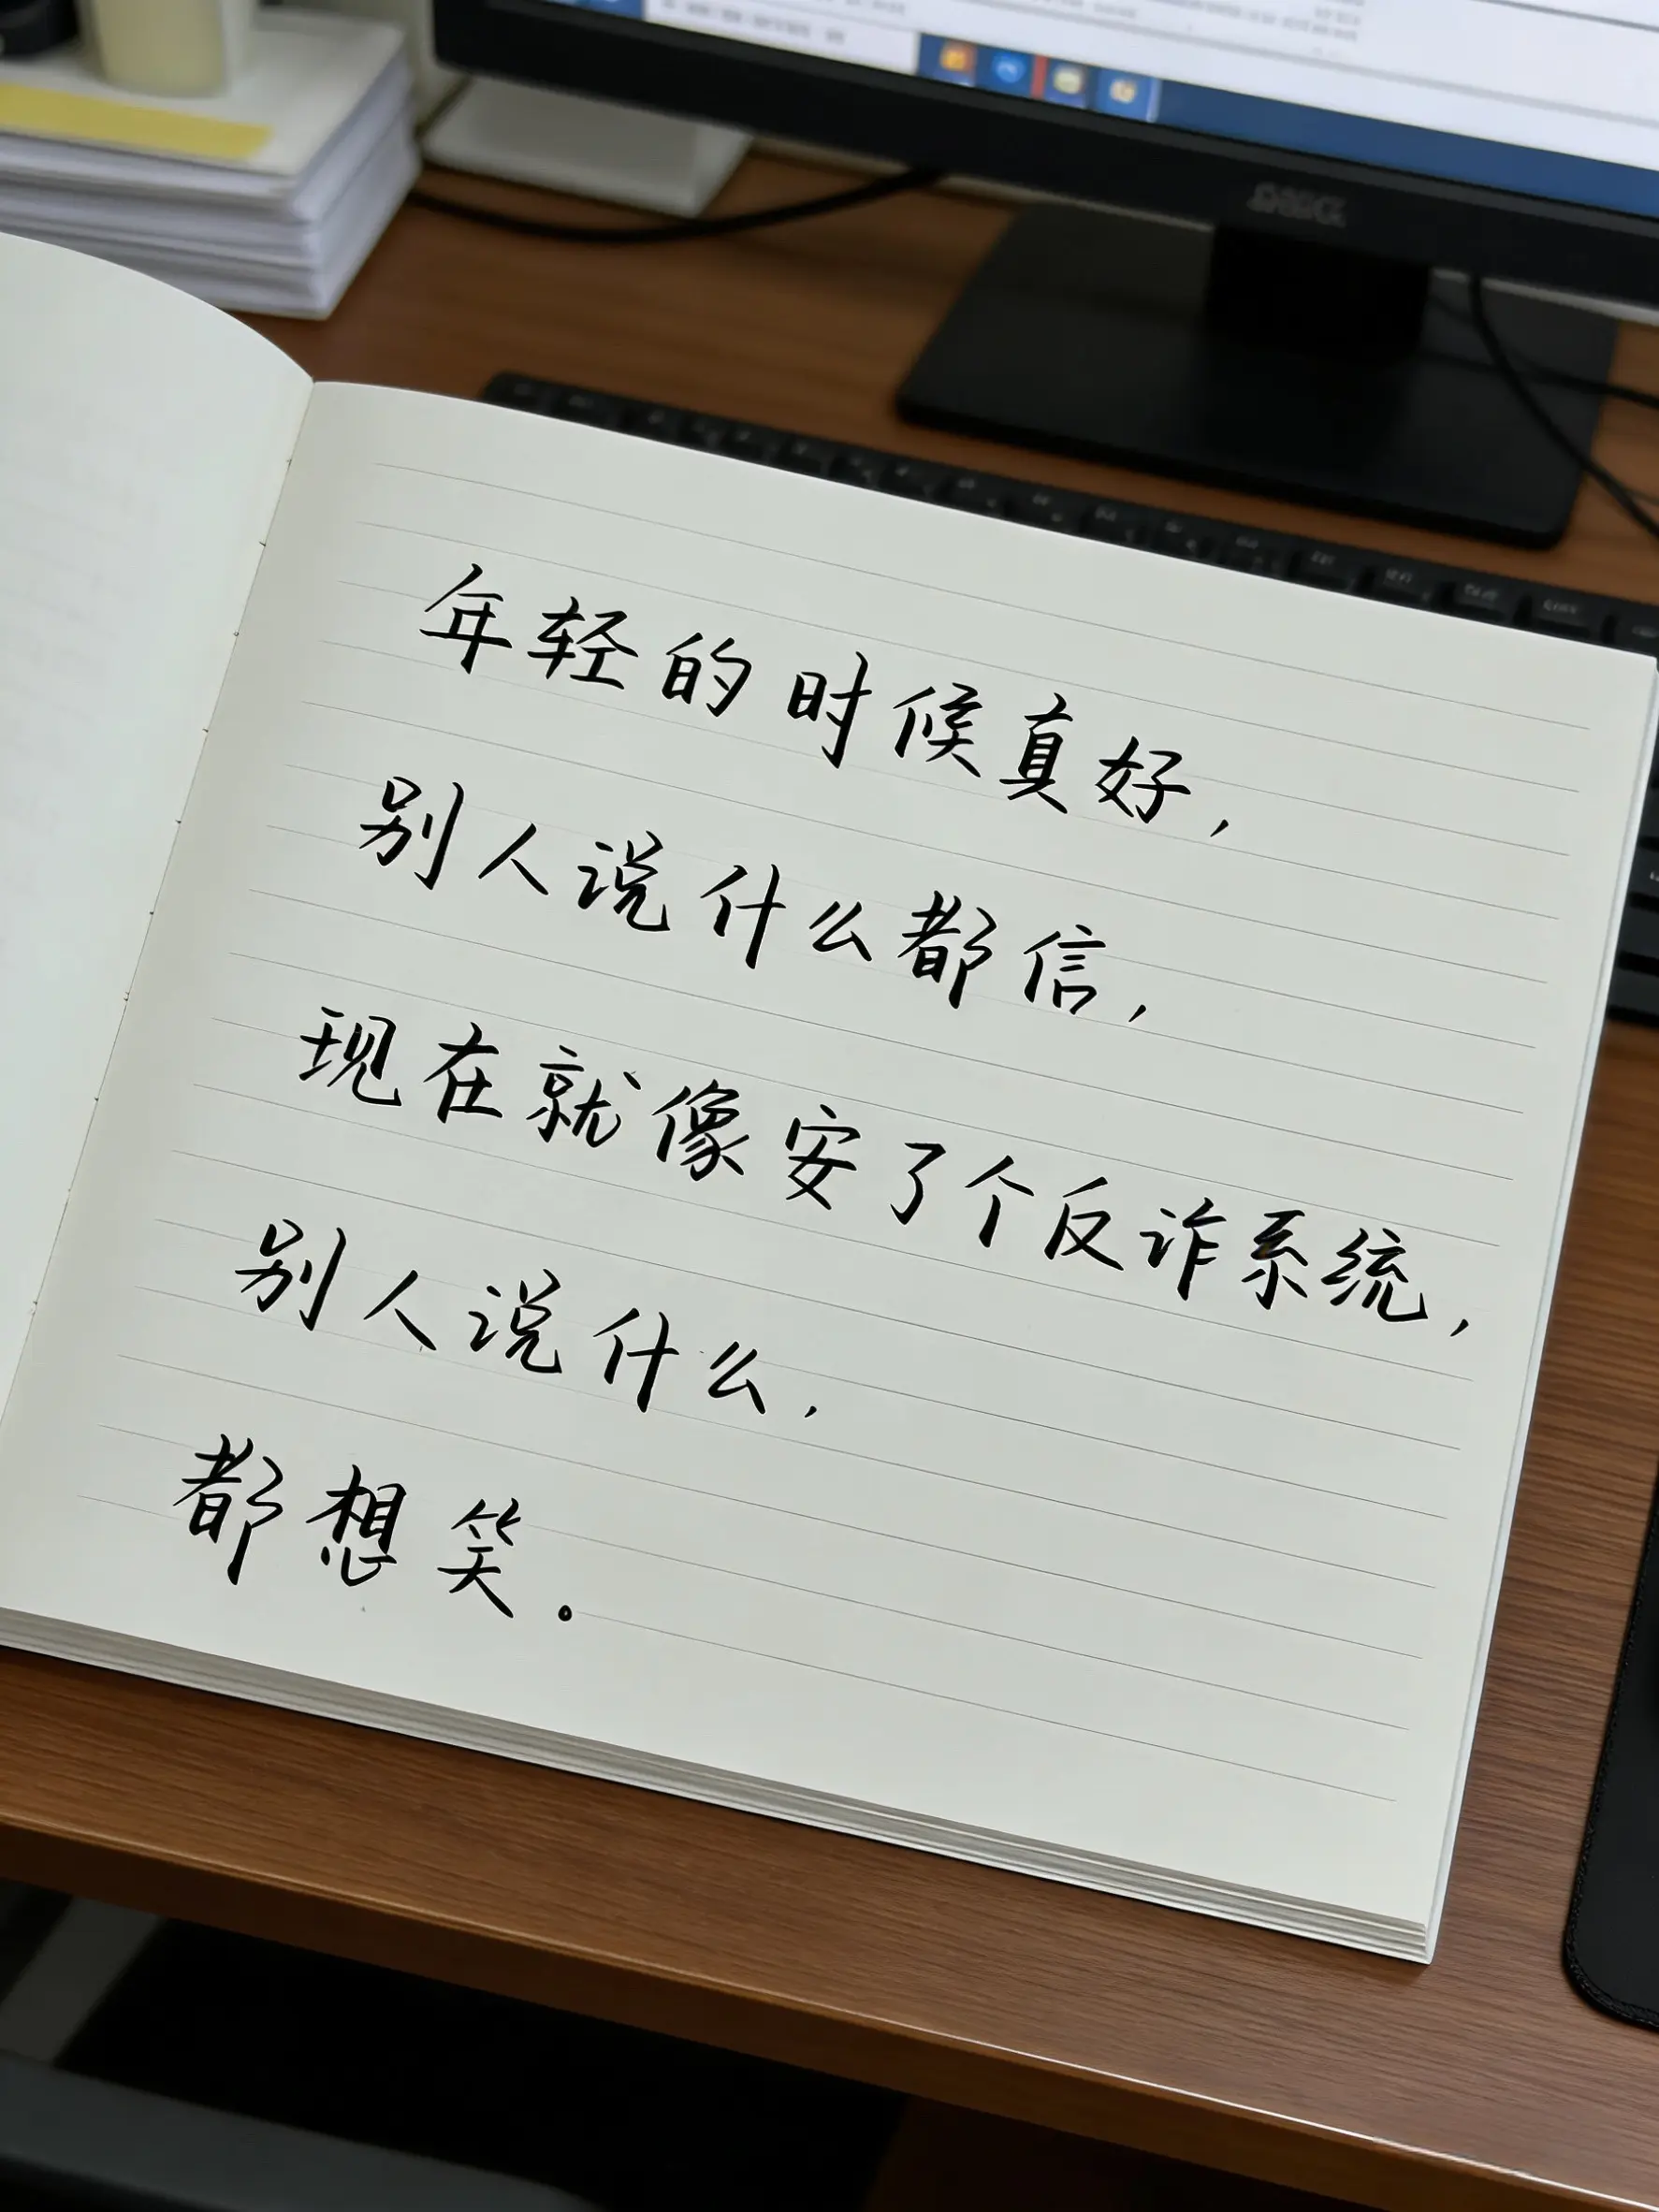 年轻的时候真好,
别人说什么都信,
现在就像安了个反诈系统,
别人说什么,
都想笑。